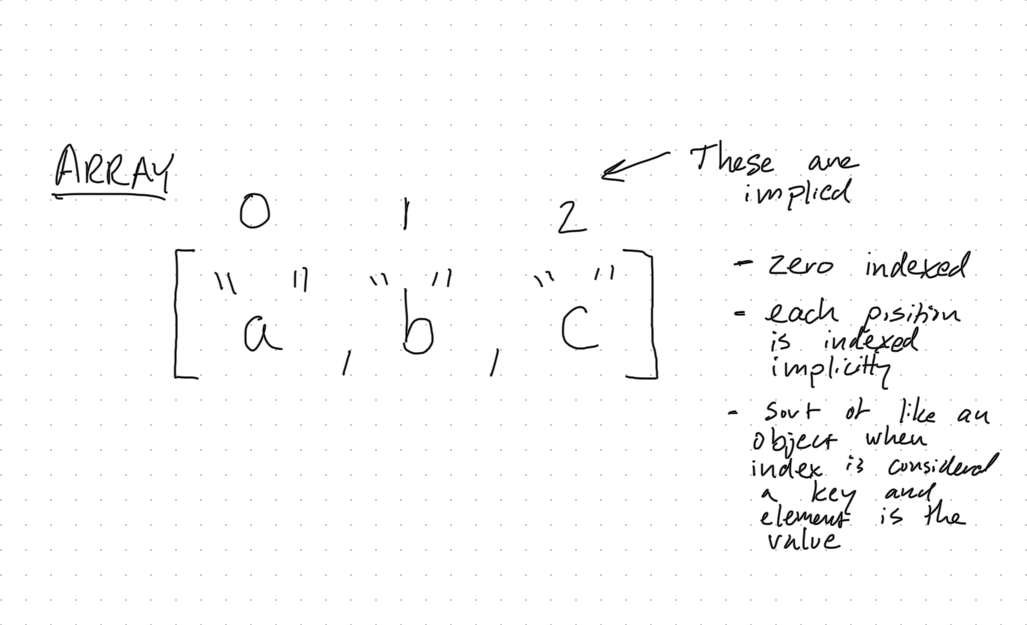 ARRAY
These are
implied
0 1 2
["a", "b", "c"]
- zero indexed
- each position
is indexed
implicitly
- sort of like an
object when
index is considered
a key and
element is the
value